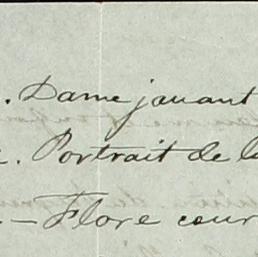 . Dame jouant
. Portrait de la
– Flore cour